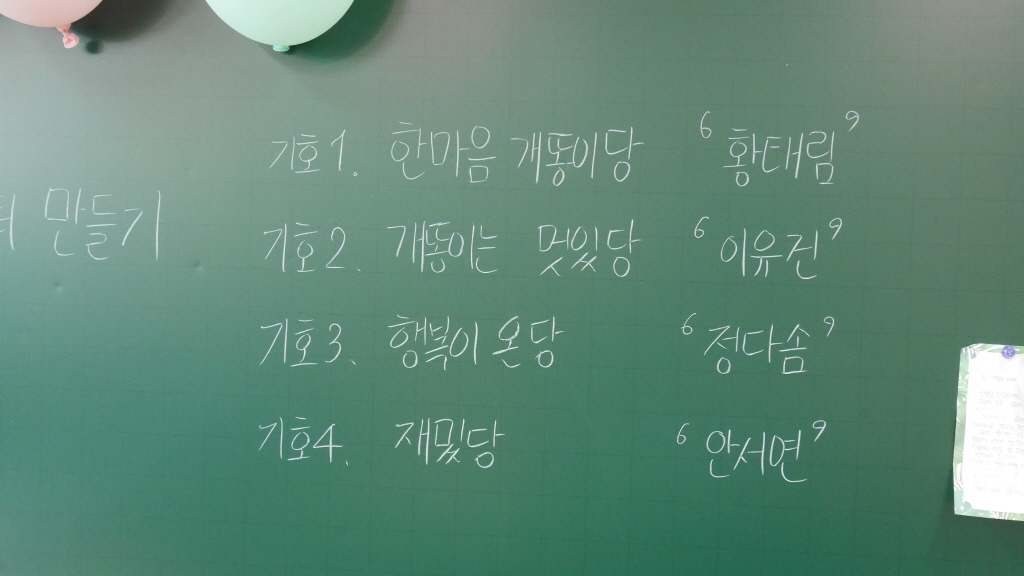 만들기
기호1. 한마음 개똥이당 ‘황태림’
기호2. 개똥이는 멋있당 ‘이유진’
기호3. 행복이 온당 ‘정다솜’
기호4. 재밌당 ‘안서연’